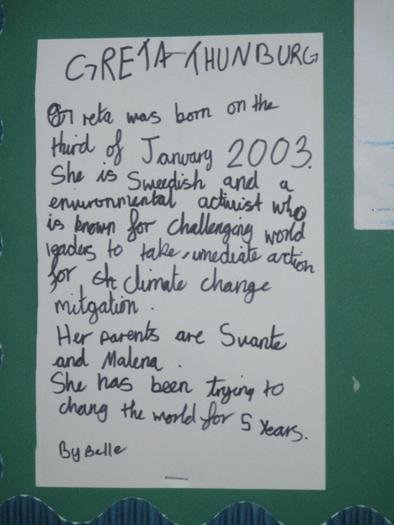 GRETA THUNBURG
Greta was born on the
third of January 2003.
She is Swedish and a
enuironmental activist who
is known for challenging world
leaders to take, umediate action
for climate change
mitgation.
Her parents are Svante
and Malena.
She has been trying to
chang the world for 5 years.
By Belle